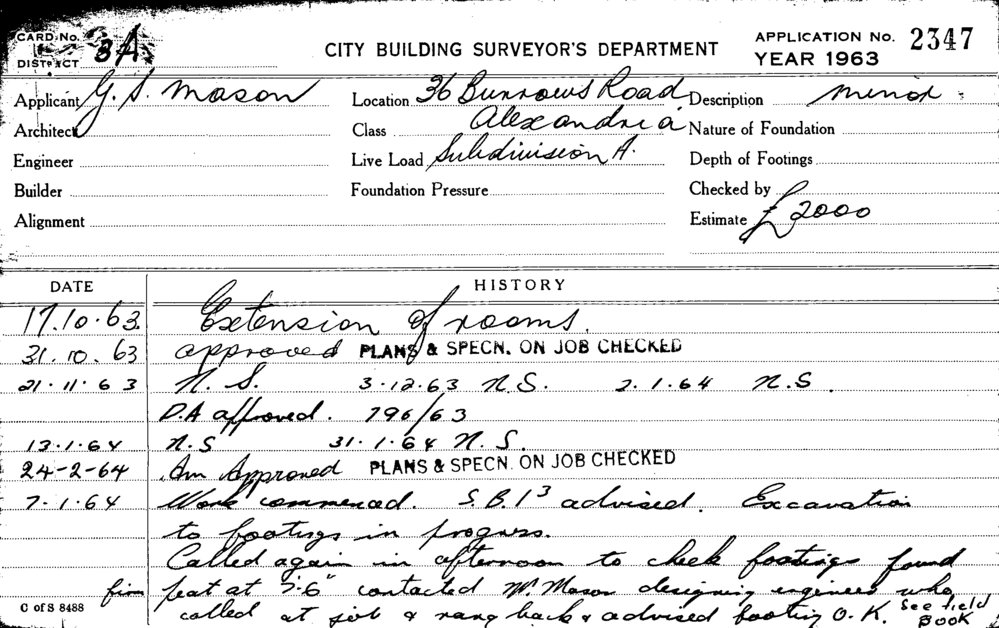 CARD No. CITY BUILDING SURVEYOR'S DEPARTMENT APPLICATION No. 2347
DISTRICT 3A YEAR 1963
Applicant G. S. Mason Location 36 Burrows Road Description minor
Architect Class Alexandria Nature of Foundation
Engineer Live Load Subdivision A. Depth of Footings
Builder Foundation Pressure Checked by
Alignment Estimate £2000
DATE HISTORY
17.10.63. Extension of rooms.
31.10.63 approved PLANS & SPECN. ON JOB CHECKED
21.11.63 N.S. 3.12.63 N.S. 2.1.64 N.S.
D.A approved. 796/63
13.1.64 N.S 31.1.64 N.S.
24-2-64 Am Approved PLANS & SPECN. ON JOB CHECKED
7.1.64 Work commenced. S.B.I 3 advised. Excavation
to footings in progress.
Called again in afternoon to check footings found
firm peat at 7'-6" contacted Mr. Mason designing engineer who
called at job & rang back & advised footing O.K. See field BOOK
C of S 8488